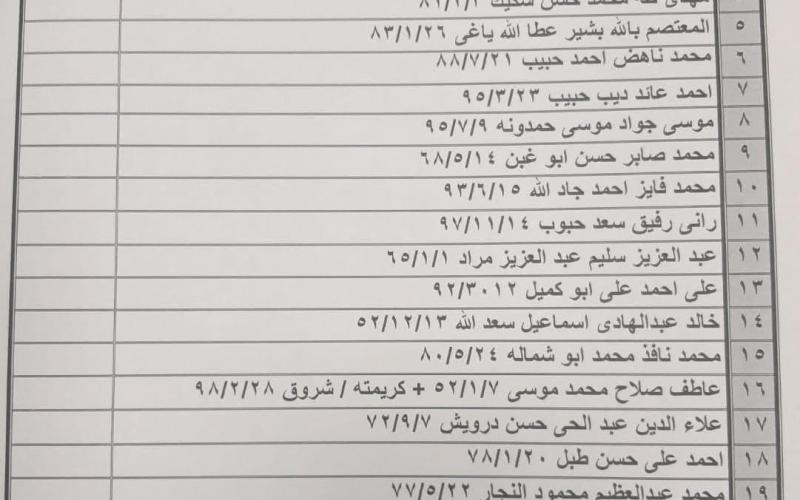 محمد حسن
٥ المعتصم بالله بشير عطا الله ياغى ٨٣/١/٢٦
٦ محمد ناهض احمد حبيب ٨٨/٧/٢١
٧ احمد عائد ديب حبيب ٩٥/٣/٢٣
٨ موسى جواد موسى حمدونه ٩٥/٧/٩
٩ محمد صابر حسن ابو غبن ٦٨/٥/١٤
١٠ محمد فايز احمد جاد الله ٩٣/٦/١٥
١١ رانى رفيق سعد حبوب ٩٧/١١/١٤
١٢ عبد العزيز سليم عبد العزيز مراد ٦٥/١/١
١٣ على احمد على ابو كميل ٩٢/٣٠١٢
١٤ خالد عبدالهادى اسماعيل سعد الله ٥٢/١٢/١٣
١٥ محمد نافذ محمد ابو شماله ٨٠/٥/٢٤
١٦ عاطف صلاح محمد موسى ٥٢/١/٧ + كريمته / شروق ٩٨/٢/٢٨
١٧ علاء الدين عبد الحى حسن درويش ٧٢/٩/٧
١٨ احمد على حسن طبل ٧٨/١/٢٠
١٩ محمد عبدالعظيم محمود النجار ٧٧/٥/٢٢